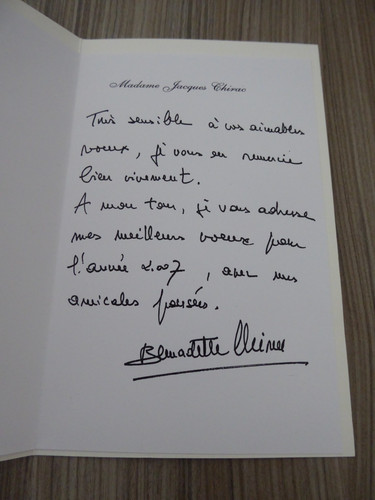 Madame Jacques Chirac
Très sensible à vos aimables
voeux, je vous en remercie
bien vivement.
A mon tour, je vous adresse
mes meilleurs voeux pour
l'année 2007, avec mes
amicales pensées.
Bernadette Chirac